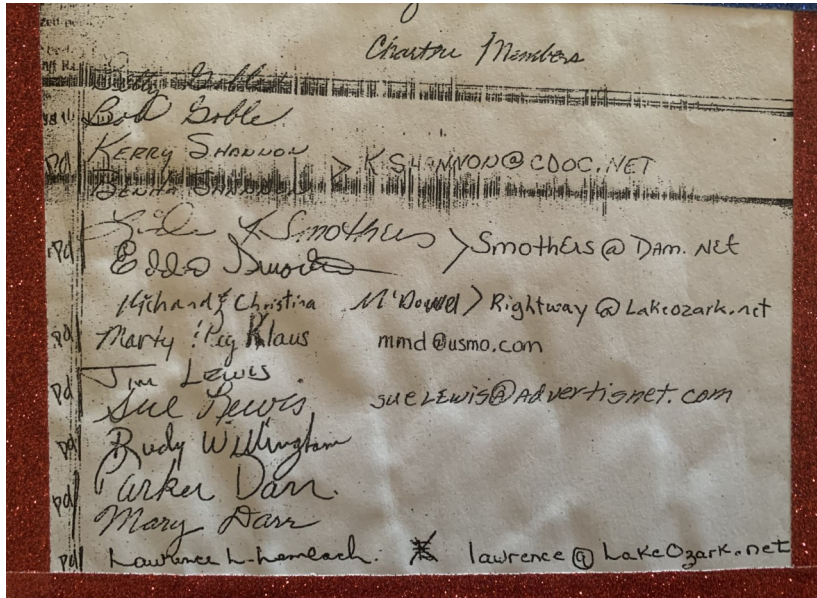 Chartru Members
Goble
Bob Goble
Pd KERRY SHANNON > KSHANNON@CDOC.NET
SHANNON
Pd Smothers > Smothers@Dam.Net
Eddie
Richard & Christina McDowel > Rightway@Lakeozark.net
pd Marty & Peg Klaus mmd@usmo.com
Jim Lewis
pd Sue Lewis sueLewis@Advertisnet.com
pd Rudy Willingham
pd Parker Darr.
Mary Darr
pd Lawrence L. lawrence@LakeOzark.net